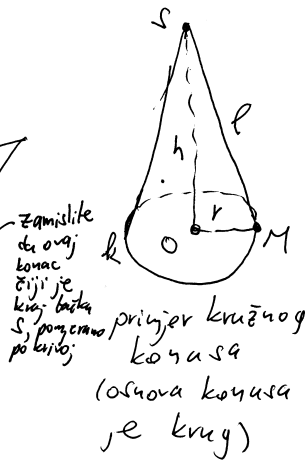 S
l
h
r
k
O
M
zamislite
da ovaj
konac
čiji je
kraj tačka
S, pomjeramo
po krivoj
primjer kružnog
konusa
(osnova konusa
je krug)